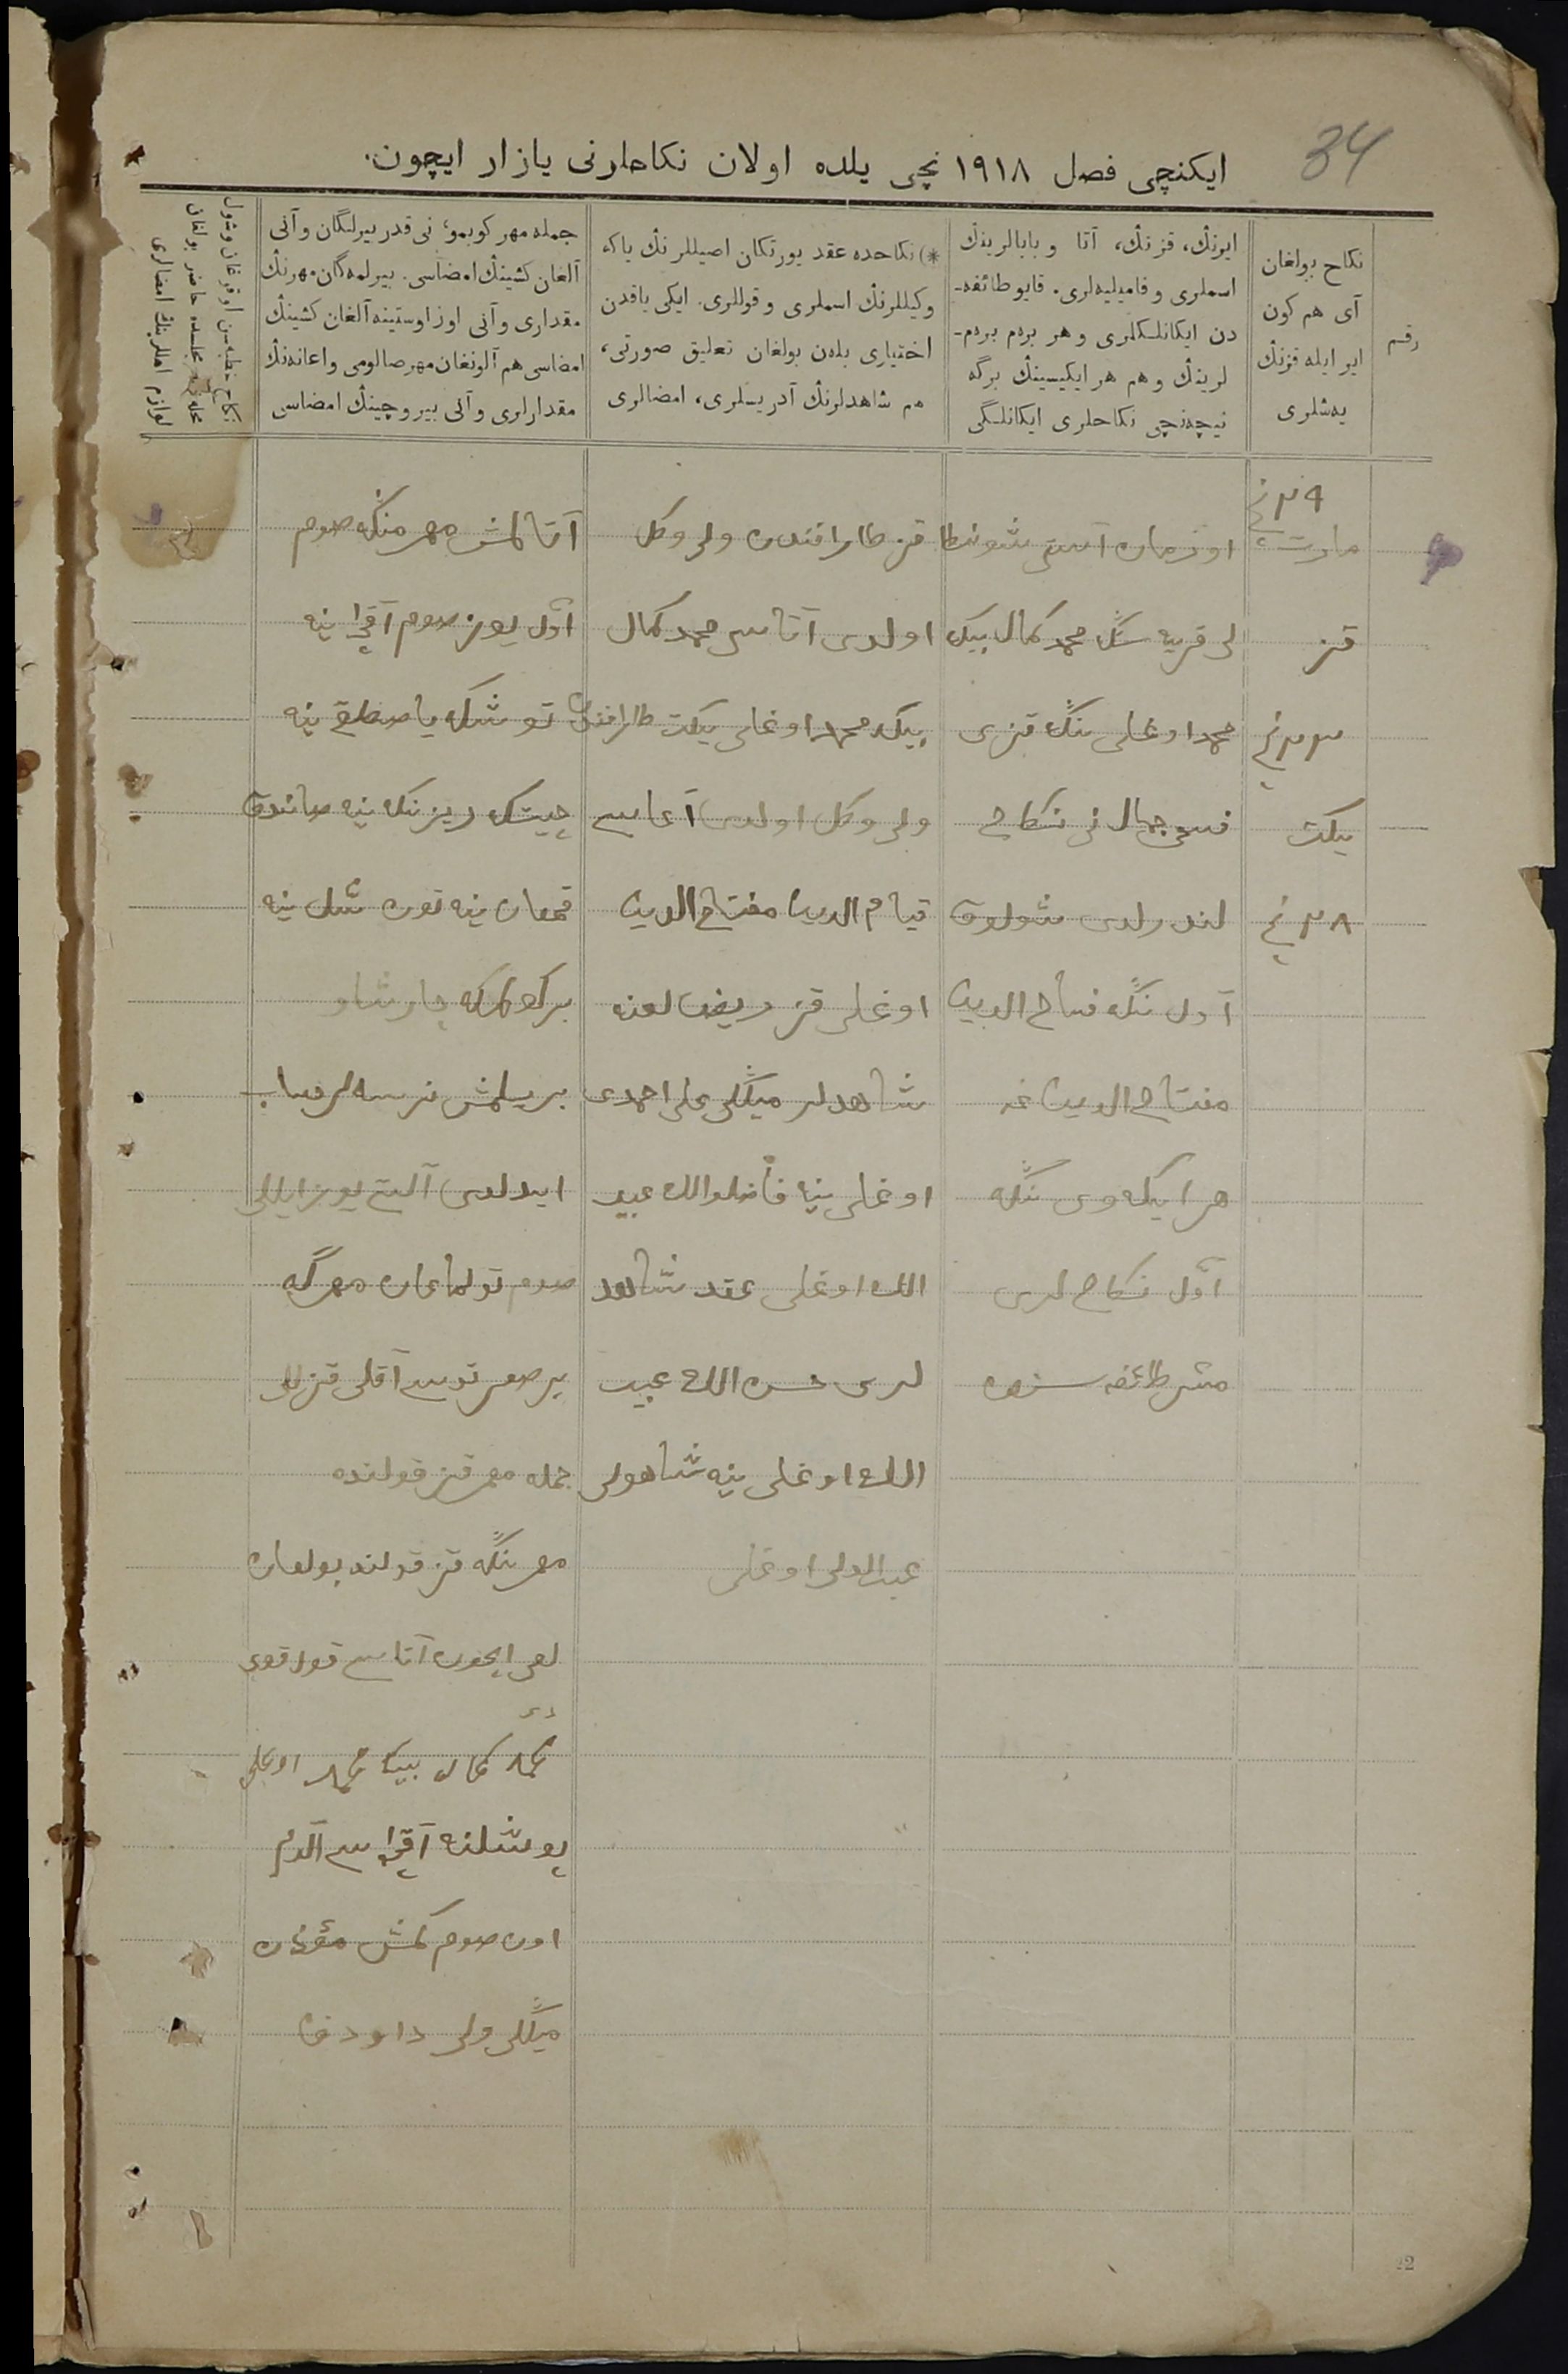 34
ایکنچی فصل ١٩١٨ نچی یلده اولان نکاحلرنی یازار ایچون.
رقم
نکاح بولغان
آی هم کون
ایر ایله قزنڭ
یه‌شلری
ایرنڭ، قزنڭ، آتا و بابالرینڭ
اسملری و فامیلیه‌لری. قایو طائفه-
دن ایکانلکلری و هر برم برم-
لرینڭ و هم هر ایکیسینڭ برگه
نیچه‌نچی نکاحلری ایکانلگی
*) نکاحده عقد یورتکان اصیللرنڭ یاکه
وکیللرنڭ اسملری و قوللری. ایکی یاقدن
اختیاری بله‌ن بولغان تعلیق صورتی،
هم شاهدلرنڭ آدریسلری، امضالری
جمله مهر کوبمو، نی قدر بیرلگان و آنی
آلغان کشینڭ امضاسی. بیرلمه‌گان مهرنڭ
مقداری و آنی اوز اوستینه آلغان کشینڭ
امضاسی هم آلونغان مهر صالومی و اعانه‌نڭ
مقدارلری و آنی بیروچینڭ امضاسی
نکاح خطبه‌سن اوقوغان و شول
مجلسده حاضر بولغان
لوازم اهللرینڭ امضالری
٩ نچی
مارت
قز
٢٣ نچی
یکت
٢٨ نچی
اوزمان آستی شونطا
لی قریه سنڭ محمد کمال بیک
محمد اوغلی ننڭ قزی
جمال نی نکاح
لندرلدی شولوق
آول ننڭ فتاح الدین
مفتاح الدین غه
هر ایکه وی ننڭ
اوّل نکاح لری
طائفه سندن
قز طرافندن ولی وکل
اولدی آتاسی محمد کمال
بیک محمد اوغلی یکت طرافندن
ولی وکل اولدی آغاسی
قیام الدین مفتاح الدین
اوغلی قز
شاهدلر میڭلی علی احمدی
اوغلی ینه فاضل الله عبید
الله اوغلی عقد شاهد
لری حسن الله عبید
الله اوغلی ینه شاه ولی
عبدالولی اوغلی
آتالمش مهر منڭ صوم
اوّل یوز صوم آقچا ینه
توشک یاصطق ینه
چیتک ریزنکه ینه صاندق
قمغان ینه
چارشاو
بریلمش نرسه لر حساب
ایدلدی آلتی یوز ایللی
صوم تولماغان مهر گه
بر صغر توسی آقلی قزللی
جمله مهر قز قولنده
مهرننڭ قز قولنده بولغان
لغی ایچون آتاسی قول قوی
دی
محمد کمال بیک محمد اوغلی
پوشلنه آقچاسی آلدم
اون صوم کمش مؤذن
میڭلی ولی داودف